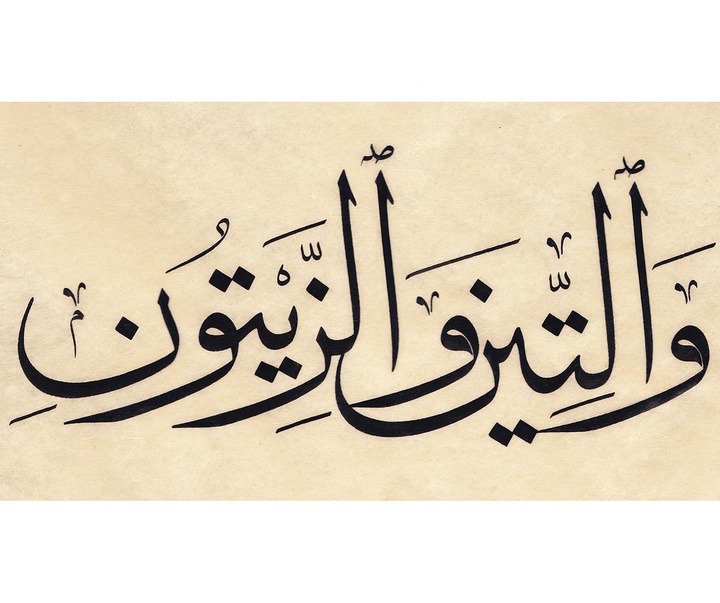 وَٱلتِّينِ وَٱلزَّيْتُونِ